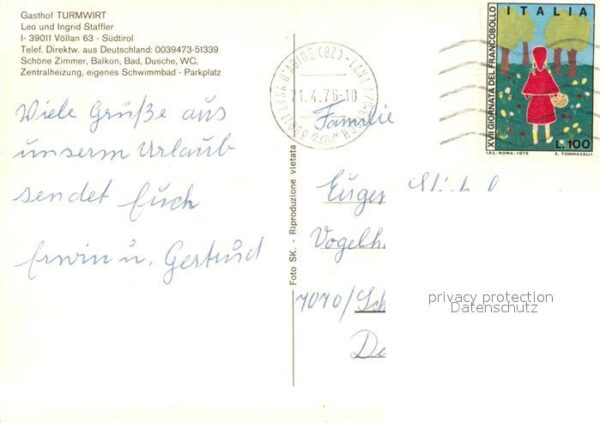 Gasthof TURMWIRT
Leo und Ingrid Staffler
I- 39011 Völlan 63 - Südtirol
Telef. Direktw. aus Deutschland: 0039473-51339
Schöne Zimmer, Balkon, Bad, Dusche, WC,
Zentralheizung, eigenes Schwimmbad - Parkplatz
Viele Grüße aus
unserm Urlaub
sendet Euch
Erwin u. Gertrud
Foto SK. - Riproduzione vietata
21.4.76-10
ITALIA
XVII GIORNATA DEL FRANCOBOLLO
L.100
I.P.S.-ROMA-1975
E. TOMMASELLI
Familie
Eugen
Vogelh
7070/Sch
De
privacy protection
Datenschutz